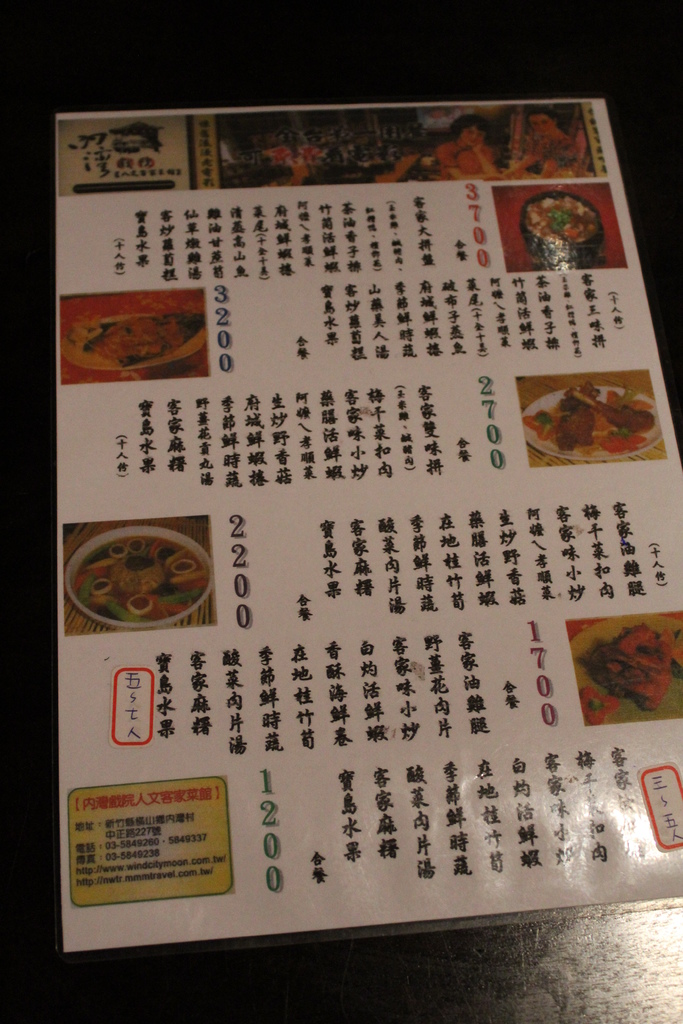 3700
合餐
客家大拼盤
(玉米雞、鹹豬肉、
茶油香子排
竹筒活鮮蝦
阿嬤ㄟ孝順菜
府城鮮蝦捲
菜尾(十全十美)
清蒸高山魚
雞油甘蔗筍
仙草燉雞湯
客炒蘿蔔粄
寶島水果
(十人份)
3200
合餐
(十人份)
客家三味拼
茶油香子排
竹筒活鮮蝦
阿嬤ㄟ孝順菜
菜尾(十全十美)
破布子蒸魚
府城鮮蝦捲
季節鮮時蔬
山藥美人湯
客炒蘿蔔粄
寶島水果
2700
合餐
客家雙味拼
(玉米雞、鹹豬肉)
梅干菜扣肉
客家味小炒
藥膳活鮮蝦
阿嬤ㄟ孝順菜
生炒野香菇
府城鮮蝦捲
季節鮮時蔬
野薑花貢丸湯
客家麻糬
寶島水果
(十人份)
2200
合餐
(十人份)
客家油雞腿
梅干菜扣肉
客家味小炒
阿嬤ㄟ孝順菜
生炒野香菇
藥膳活鮮蝦
在地桂竹筍
季節鮮時蔬
酸菜肉片湯
客家麻糬
寶島水果
1700
合餐
客家油雞腿
野薑花肉片
客家味小炒
白灼活鮮蝦
香酥海鮮卷
在地桂竹筍
季節鮮時蔬
酸菜肉片湯
客家麻糬
寶島水果
五~七人
1200
合餐
三~五人
客家
梅干菜扣肉
客家味小炒
白灼活鮮蝦
在地桂竹筍
季節鮮時蔬
酸菜肉片湯
客家麻糬
寶島水果
【內灣戲院人文客家菜館】
地址：新竹縣橫山鄉內灣村
中正路227號
電話：03-5849260．5849337
傳真：03-5849238
http://www.windcitymoon.com.tw/
http://nwtr.mmmtravel.com.tw/